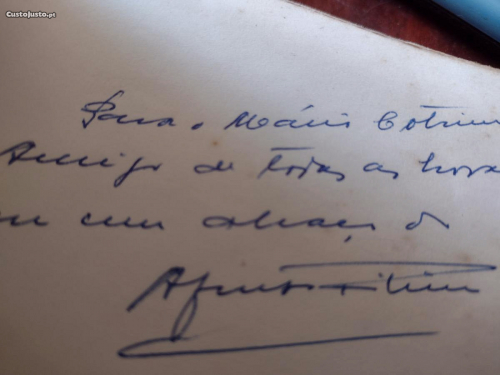 CustoJusto.pt
Para o Mário Cotrim
Amigo de todas as horas
um abraço do